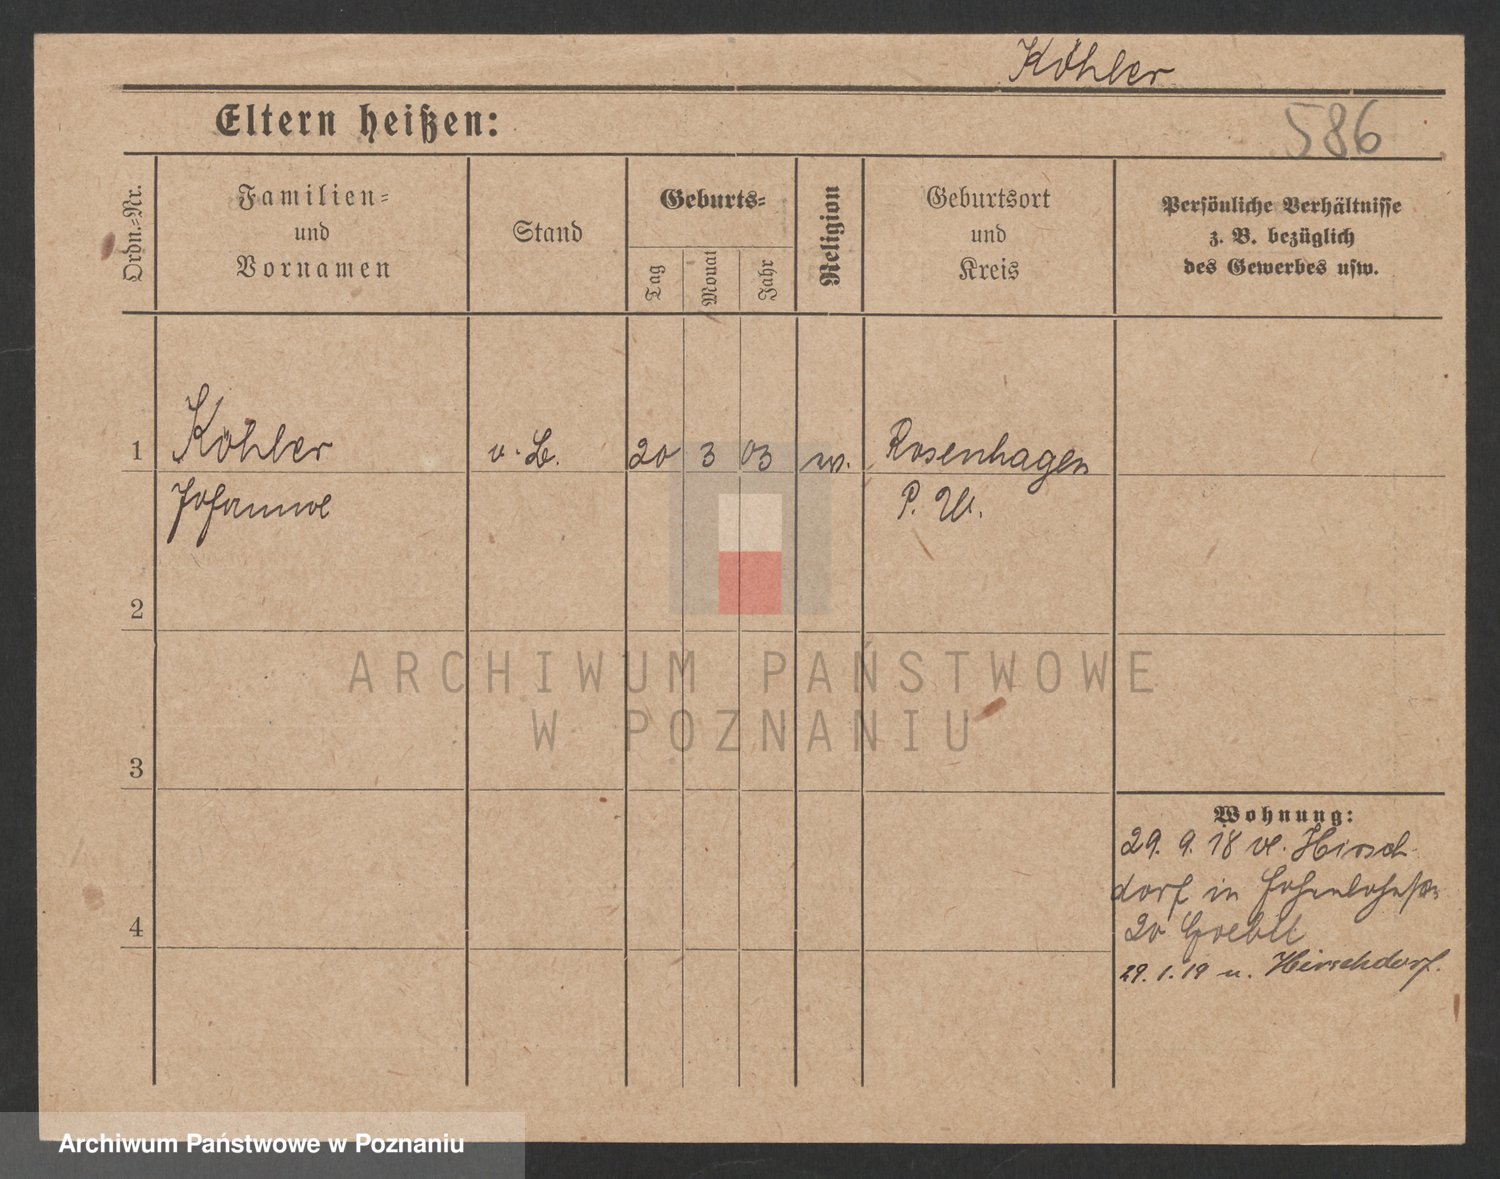 Köhler
Eltern heißen:
586
Ordn.-Nr.
Familien-
und
Vornamen
Stand
Geburts-
Tag
Monat
Jahr
Religion
Geburtsort
und
Kreis
Persönliche Verhältnisse
z. B. bezüglich
des Gewerbes usw.
1
Köhler
Johanne
20
3
03
Rosenhagen
P. W.
2
3
4
Wohnung:
29. 9. 18 Hirsch-
dorf in Hohenlohestr.
20
29. 1. 19 n. Hirschdorf.
ARCHIWUM PAŃSTWOWE
W POZNANIU
Archiwum Państwowe w Poznaniu